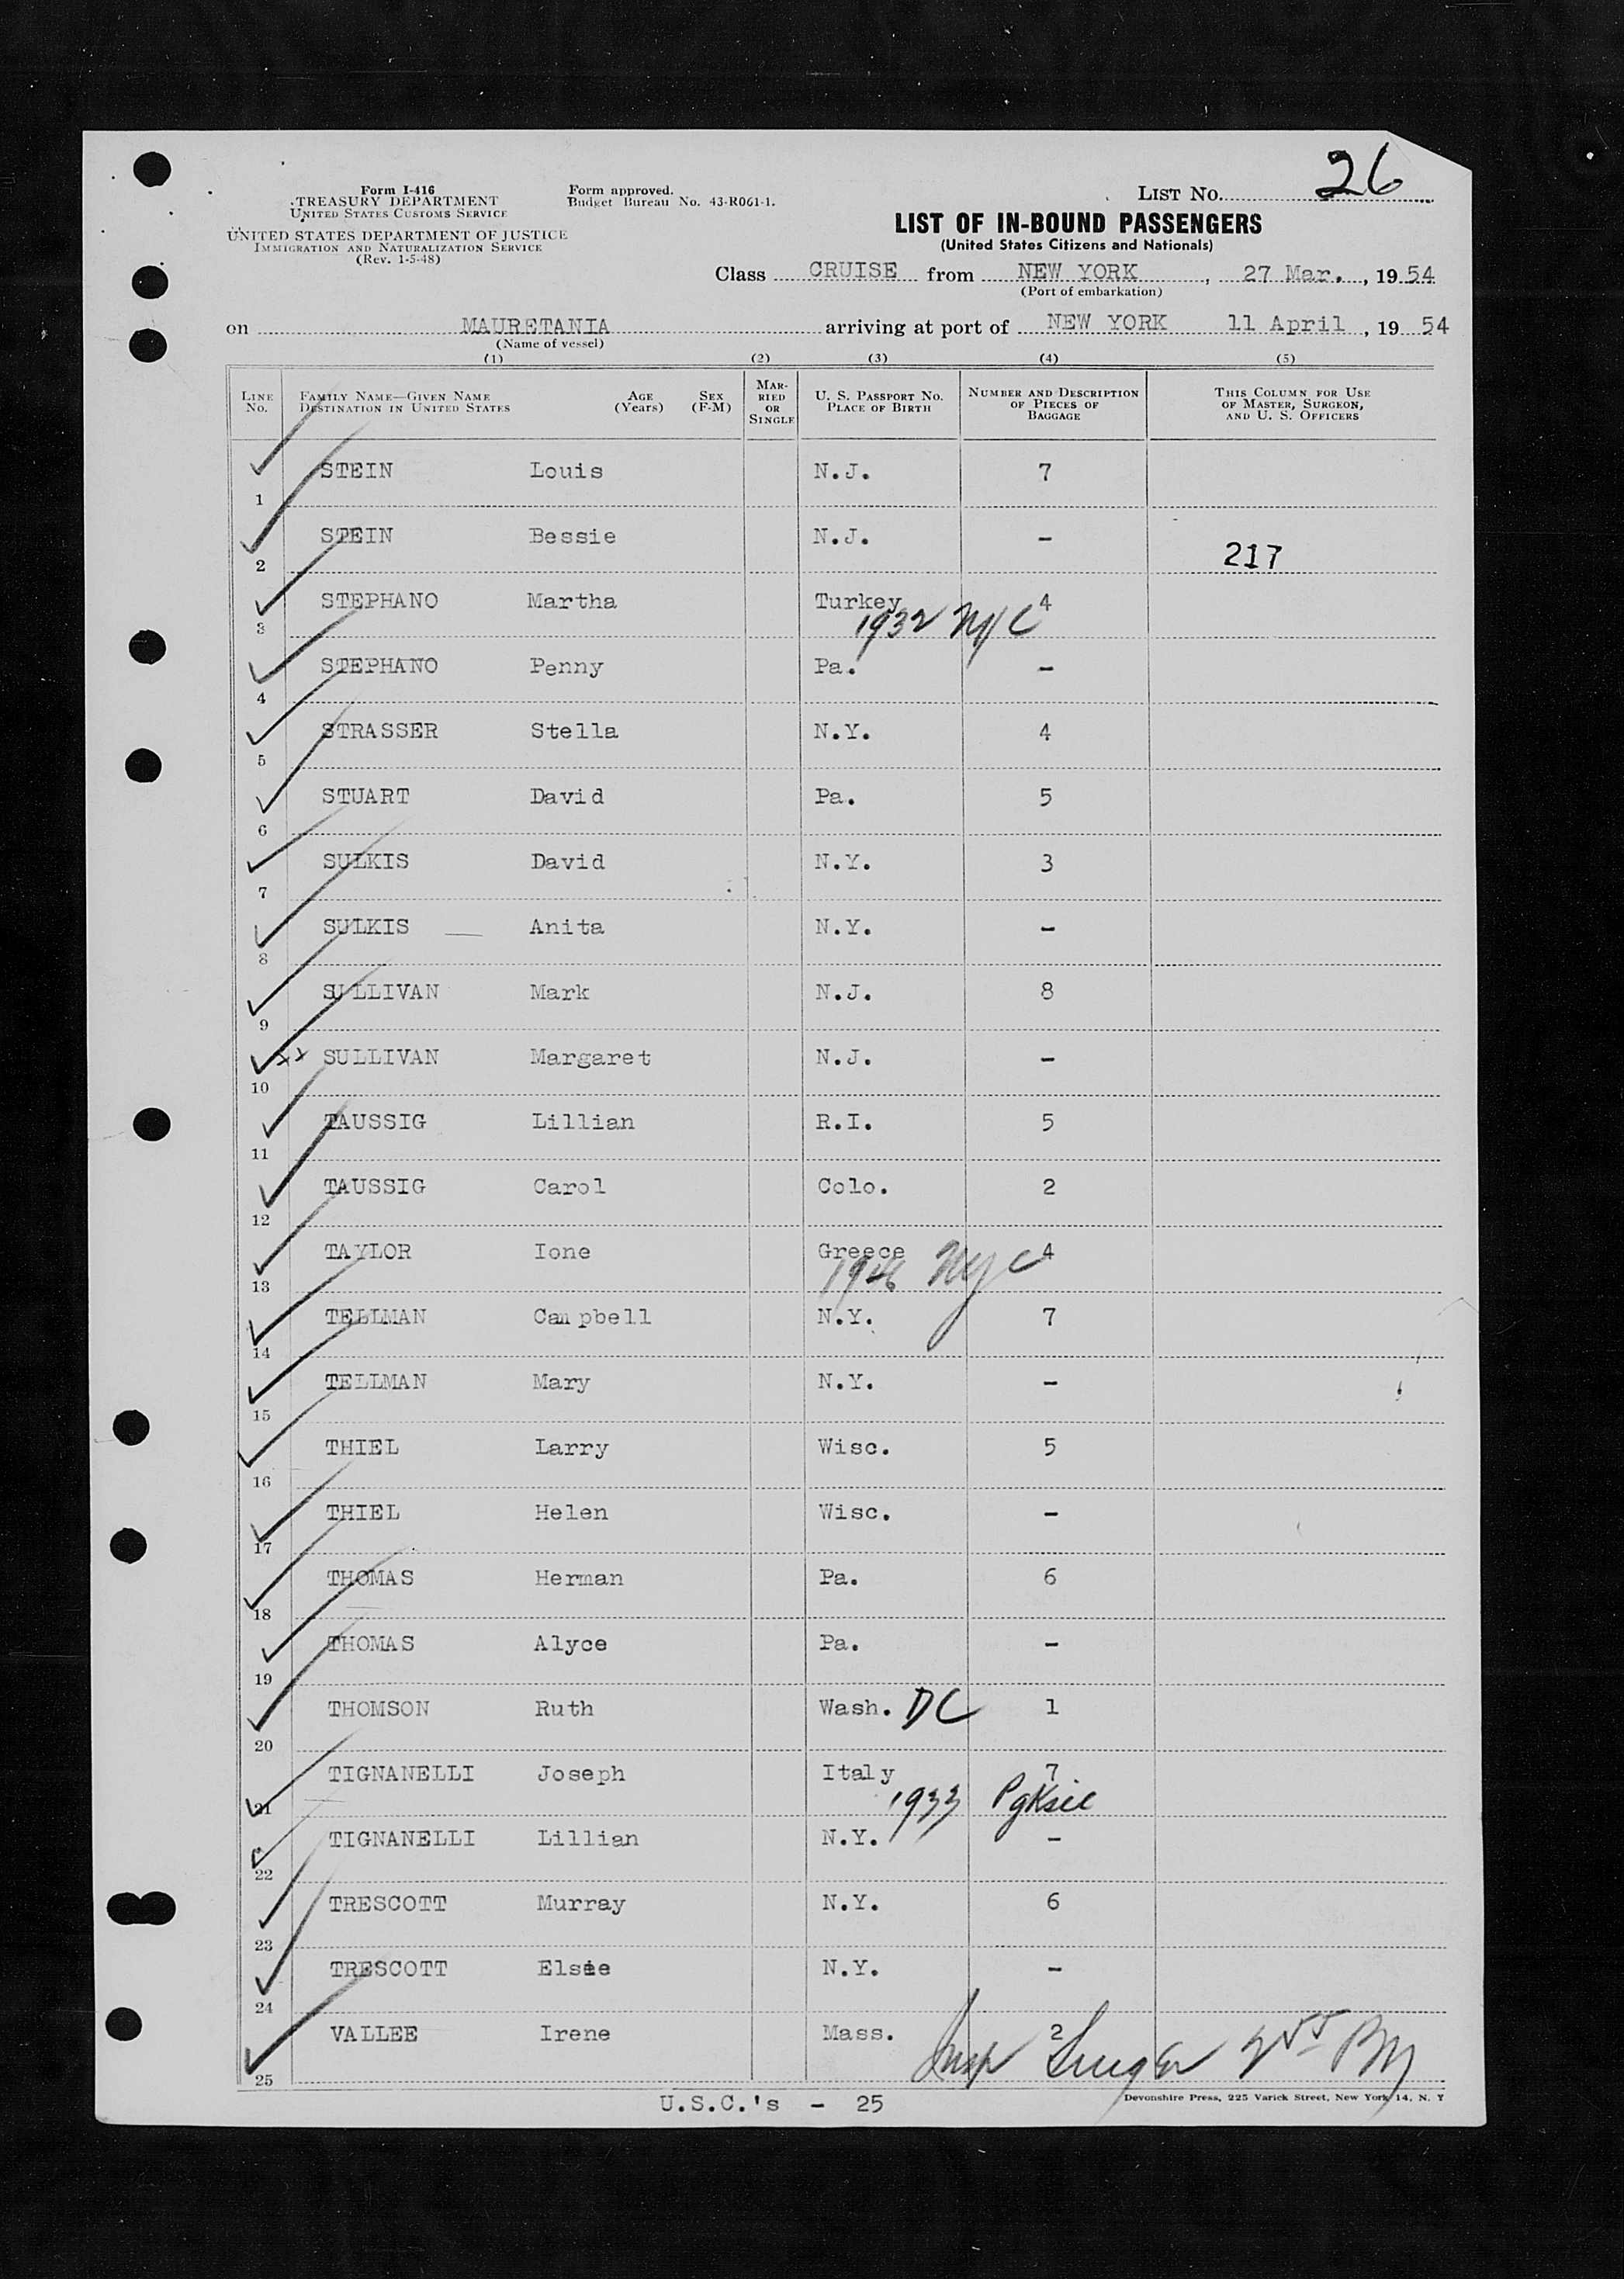 26
Form I-416
TREASURY DEPARTMENT
UNITED STATES CUSTOMS SERVICE
UNITED STATES DEPARTMENT OF JUSTICE
IMMIGRATION AND NATURALIZATION SERVICE
(Rev. 1-5-48)
Form approved.
Budget Bureau No. 43-R061-1.
LIST NO.
LIST OF IN-BOUND PASSENGERS
(United States Citizens and Nationals)
Class CRUISE from NEW YORK, 27 Mar., 1954
(Port of embarkation)
on MAURETANIA arriving at port of NEW YORK 11 April, 1954
(Name of vessel)
(1) (2) (3) (4) (5)
LINE No. FAMILY NAME—GIVEN NAME DESTINATION IN UNITED STATES AGE (Years) SEX (F-M) MARRIED OR SINGLE U. S. PASSPORT NO. PLACE OF BIRTH NUMBER AND DESCRIPTION OF PIECES OF BAGGAGE THIS COLUMN FOR USE OF MASTER, SURGEON, AND U. S. OFFICERS
1 STEIN Louis N.J. 7
2 STEIN Bessie N.J. - 217
3 STEPHANO Martha Turkey 4
1932 NYC
4 STEPHANO Penny Pa. -
5 STRASSER Stella N.Y. 4
6 STUART David Pa. 5
7 SULKIS David N.Y. 3
8 SULKIS Anita N.Y. -
9 SULLIVAN Mark N.J. 8
10 xx SULLIVAN Margaret N.J. -
11 TAUSSIG Lillian R.I. 5
12 TAUSSIG Carol Colo. 2
13 TAYLOR Ione Greece 4
1946 NYC
14 TELLMAN Campbell N.Y. 7
15 TELLMAN Mary N.Y. -
16 THIEL Larry Wisc. 5
17 THIEL Helen Wisc. -
18 THOMAS Herman Pa. 6
19 THOMAS Alyce Pa. -
20 THOMSON Ruth Wash. DC 1
21 TIGNANELLI Joseph Italy 7
1933
22 TIGNANELLI Lillian N.Y. -
23 TRESCOTT Murray N.Y. 6
24 TRESCOTT Elsie N.Y. -
25 VALLEE Irene Mass. 2
Insp
U.S.C.'s - 25
Devonshire Press, 225 Varick Street, New York 14, N. Y